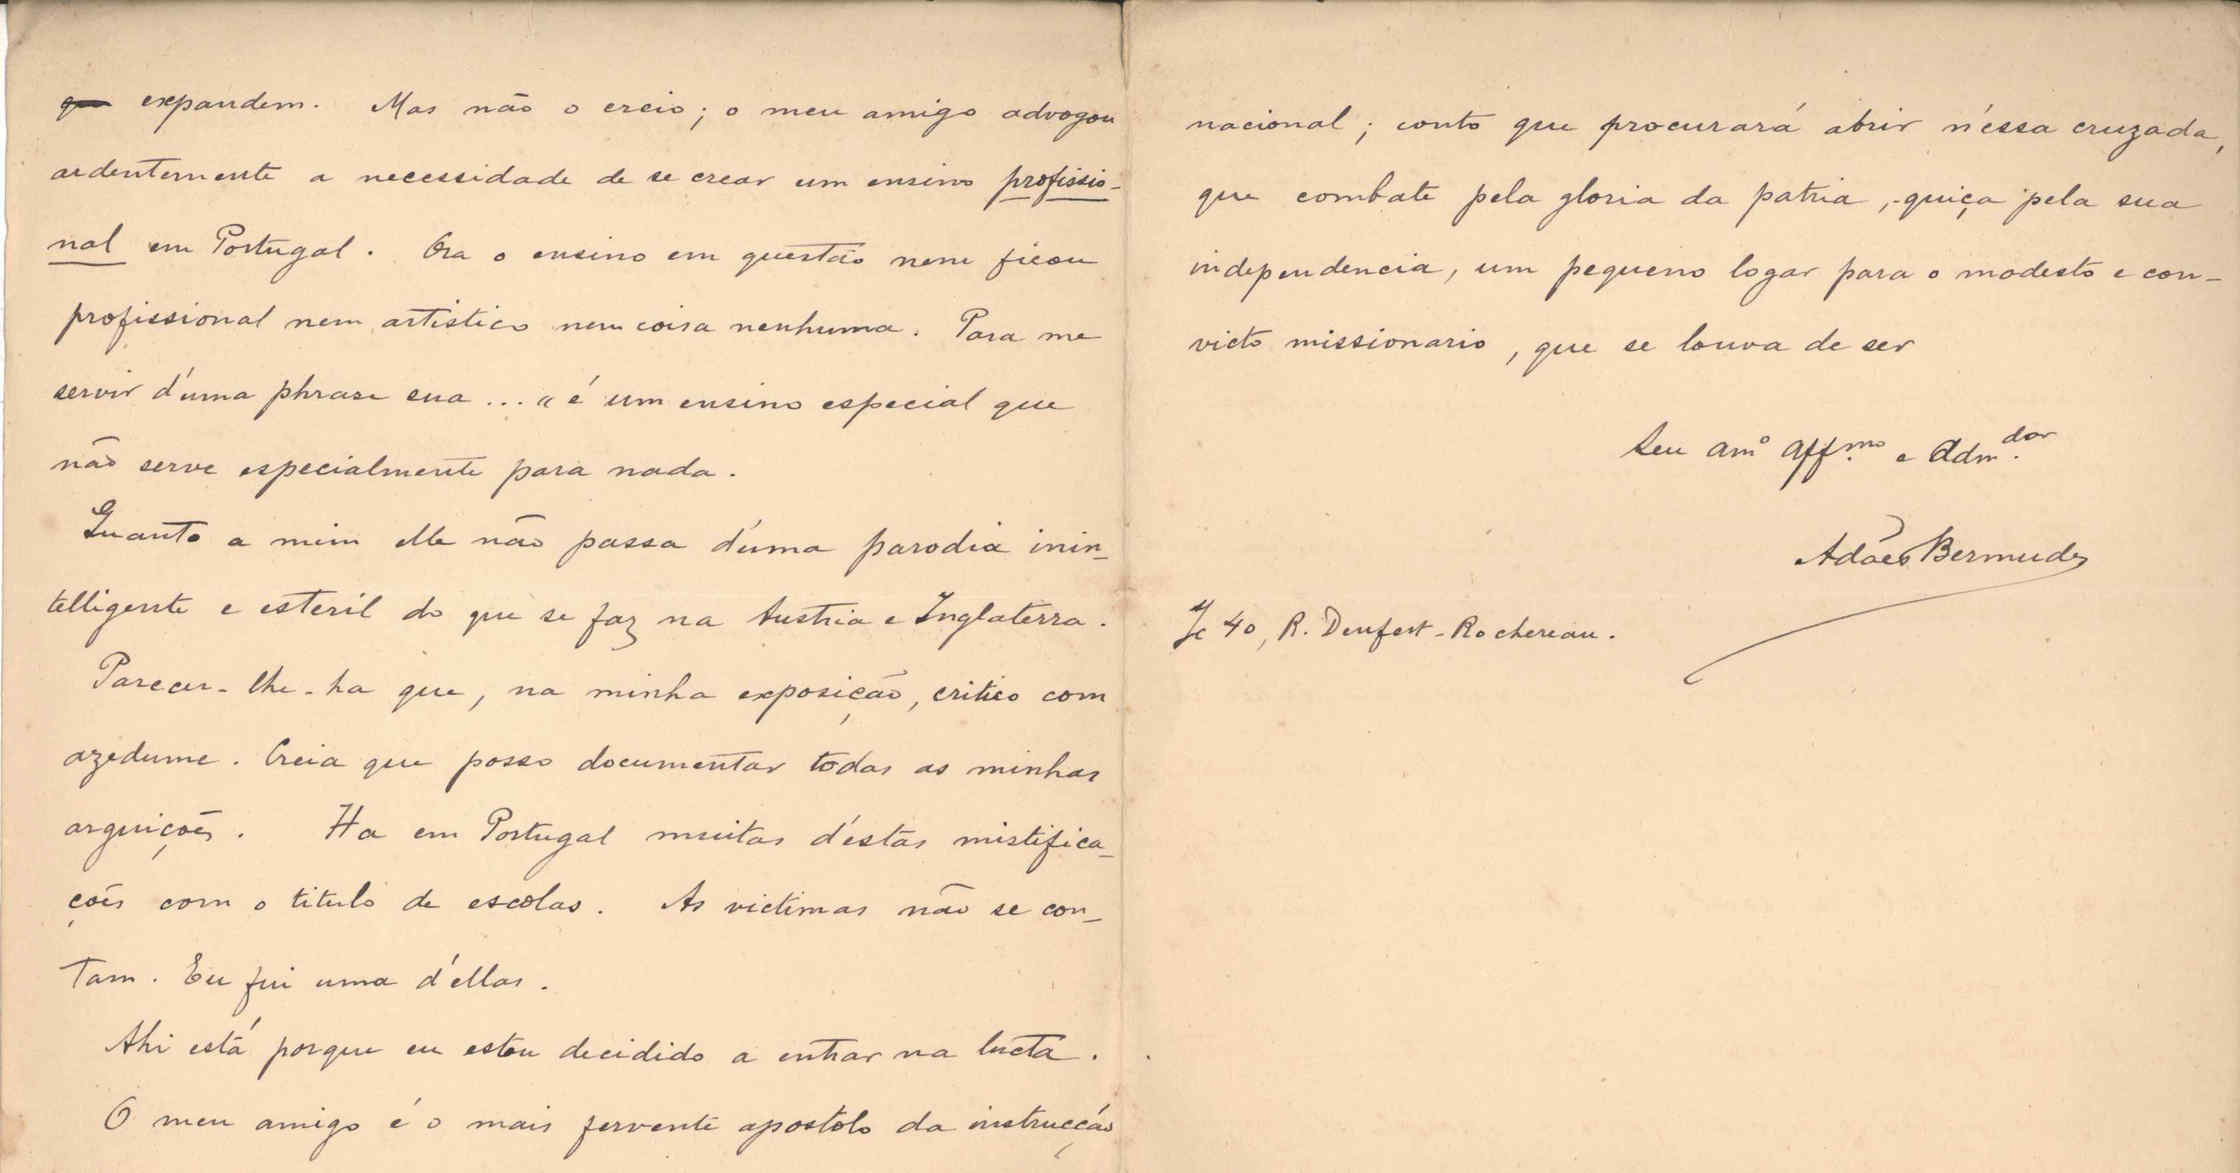 expandem. Mas não o creio; o meu amigo advogou
ardentemente a necessidade de se crear um ensino profissio-
nal em Portugal. Ora o ensino em questão nem ficou
profissional nem artistico nem coisa nenhuma. Para me
servir d'uma phrase sua ... "é um ensino especial que
não serve especialmente para nada.
Quanto a mim elle não passa d'uma parodia inin-
telligente e esteril do que se faz na Austria e Inglaterra.
Parecer-lhe-ha que, na minha exposição, critico com
azedume. Creia que posso documentar todas as minhas
arguições. Ha em Portugal muitas d'estas mistifica-
ções com o titulo de escolas. As victimas não se con-
tam. Eu fui uma d'ellas.
Ahi está porque eu estou decidido a entrar na lucta.
O meu amigo é o mais fervente apostolo da instrucção
nacional; conto que procurará abrir n'essa cruzada,
que combate pela gloria da patria, quiça pela sua
independencia, um pequeno logar para o modesto e con-
victo missionario, que se louva de ser
Seu amº affmo e Admdor
Adães Bermudes
40, R. Denfert-Rochereau.